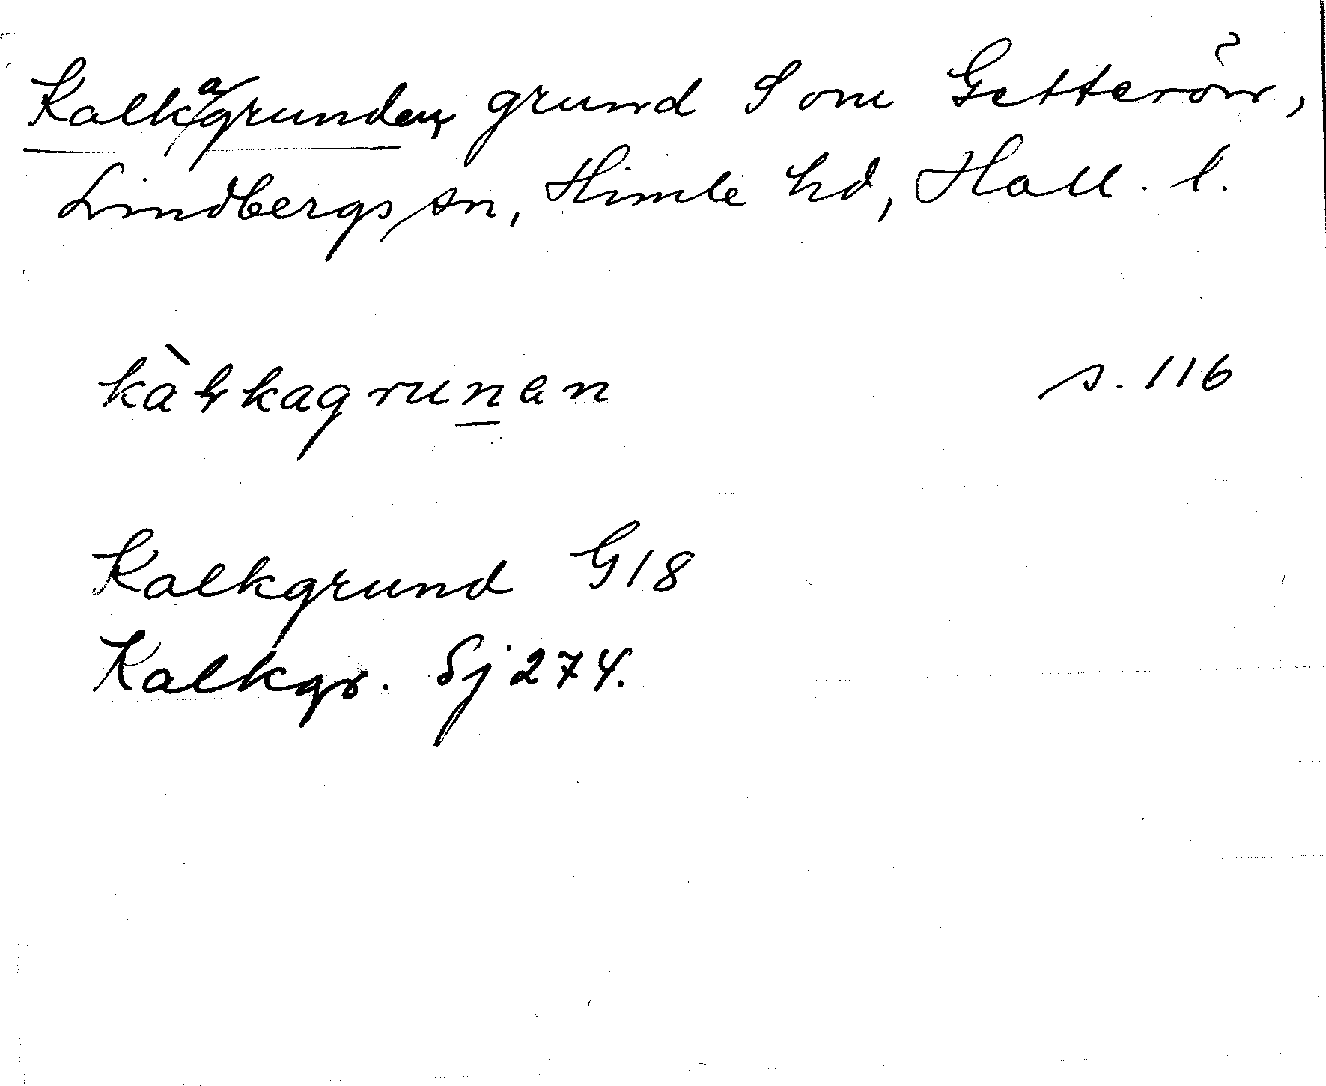 Kalkagrunden, grund S om Getterön,
Lindbergs sn, Himle hd, Hall. l.
kàɫkagrunen s. 116
Kalkgrund G18
Kalkgr. Sj 274.